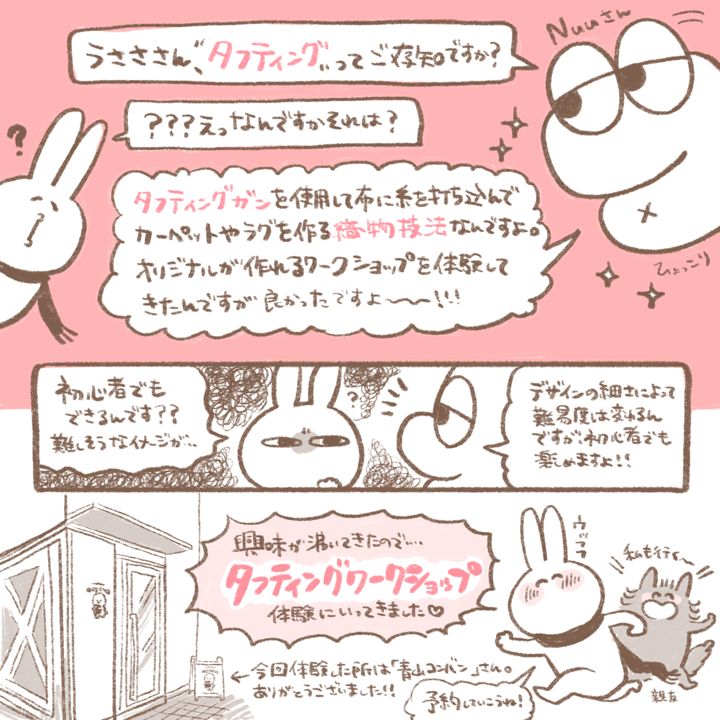 Nuuさん
うさささん、"タフティング"ってご存知ですか?
?
???えっなんですかそれは?
タフティングガンを使用して布に糸を打ち込んで
カーペットやラグを作る織物技法なんですよ。
オリジナルが作れるワークショップを体験して
きたんですが良かったですよ〜〜!!!
ひょっこり
初心者でも
できるんです??
難しそうなイメージが...
?
デザインの細さによって
難易度は変わるん
ですが、初心者でも
楽しめますよ!!
興味が沸いてきたので...
タフティングワークショップ
体験にいってきました♡
ウフフフ
私も行く〜
←今回体験した所は「青山コンバン」さん。
ありがとうございました!!
予約していこうね!
親友